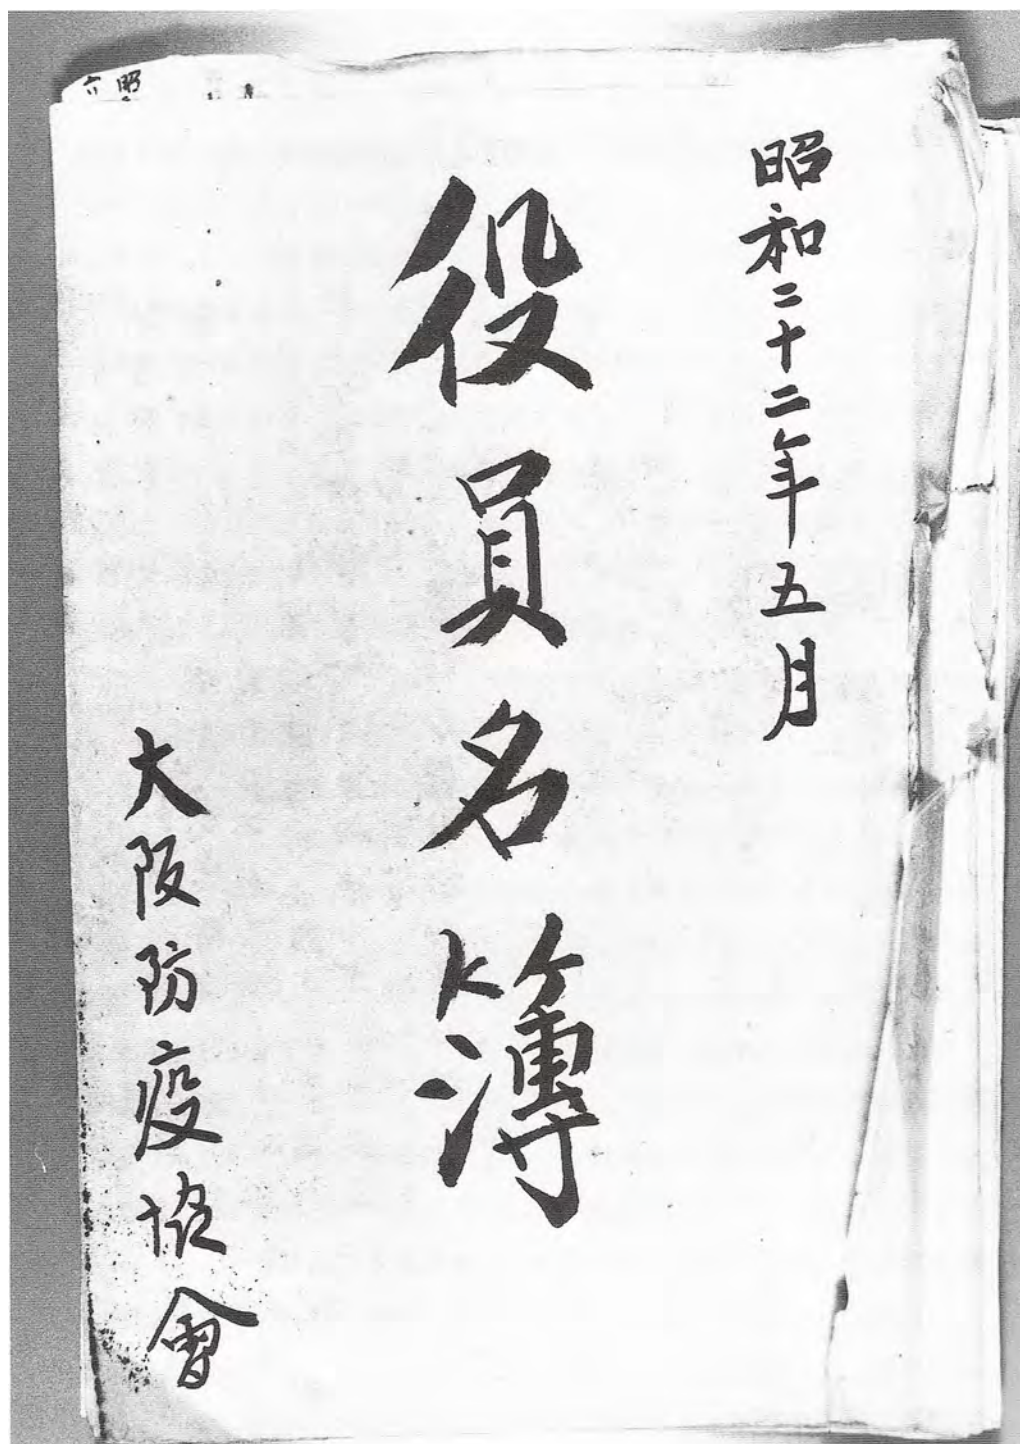 昭和二十二年五月
役員名簿
大阪防疫協會
昭
六